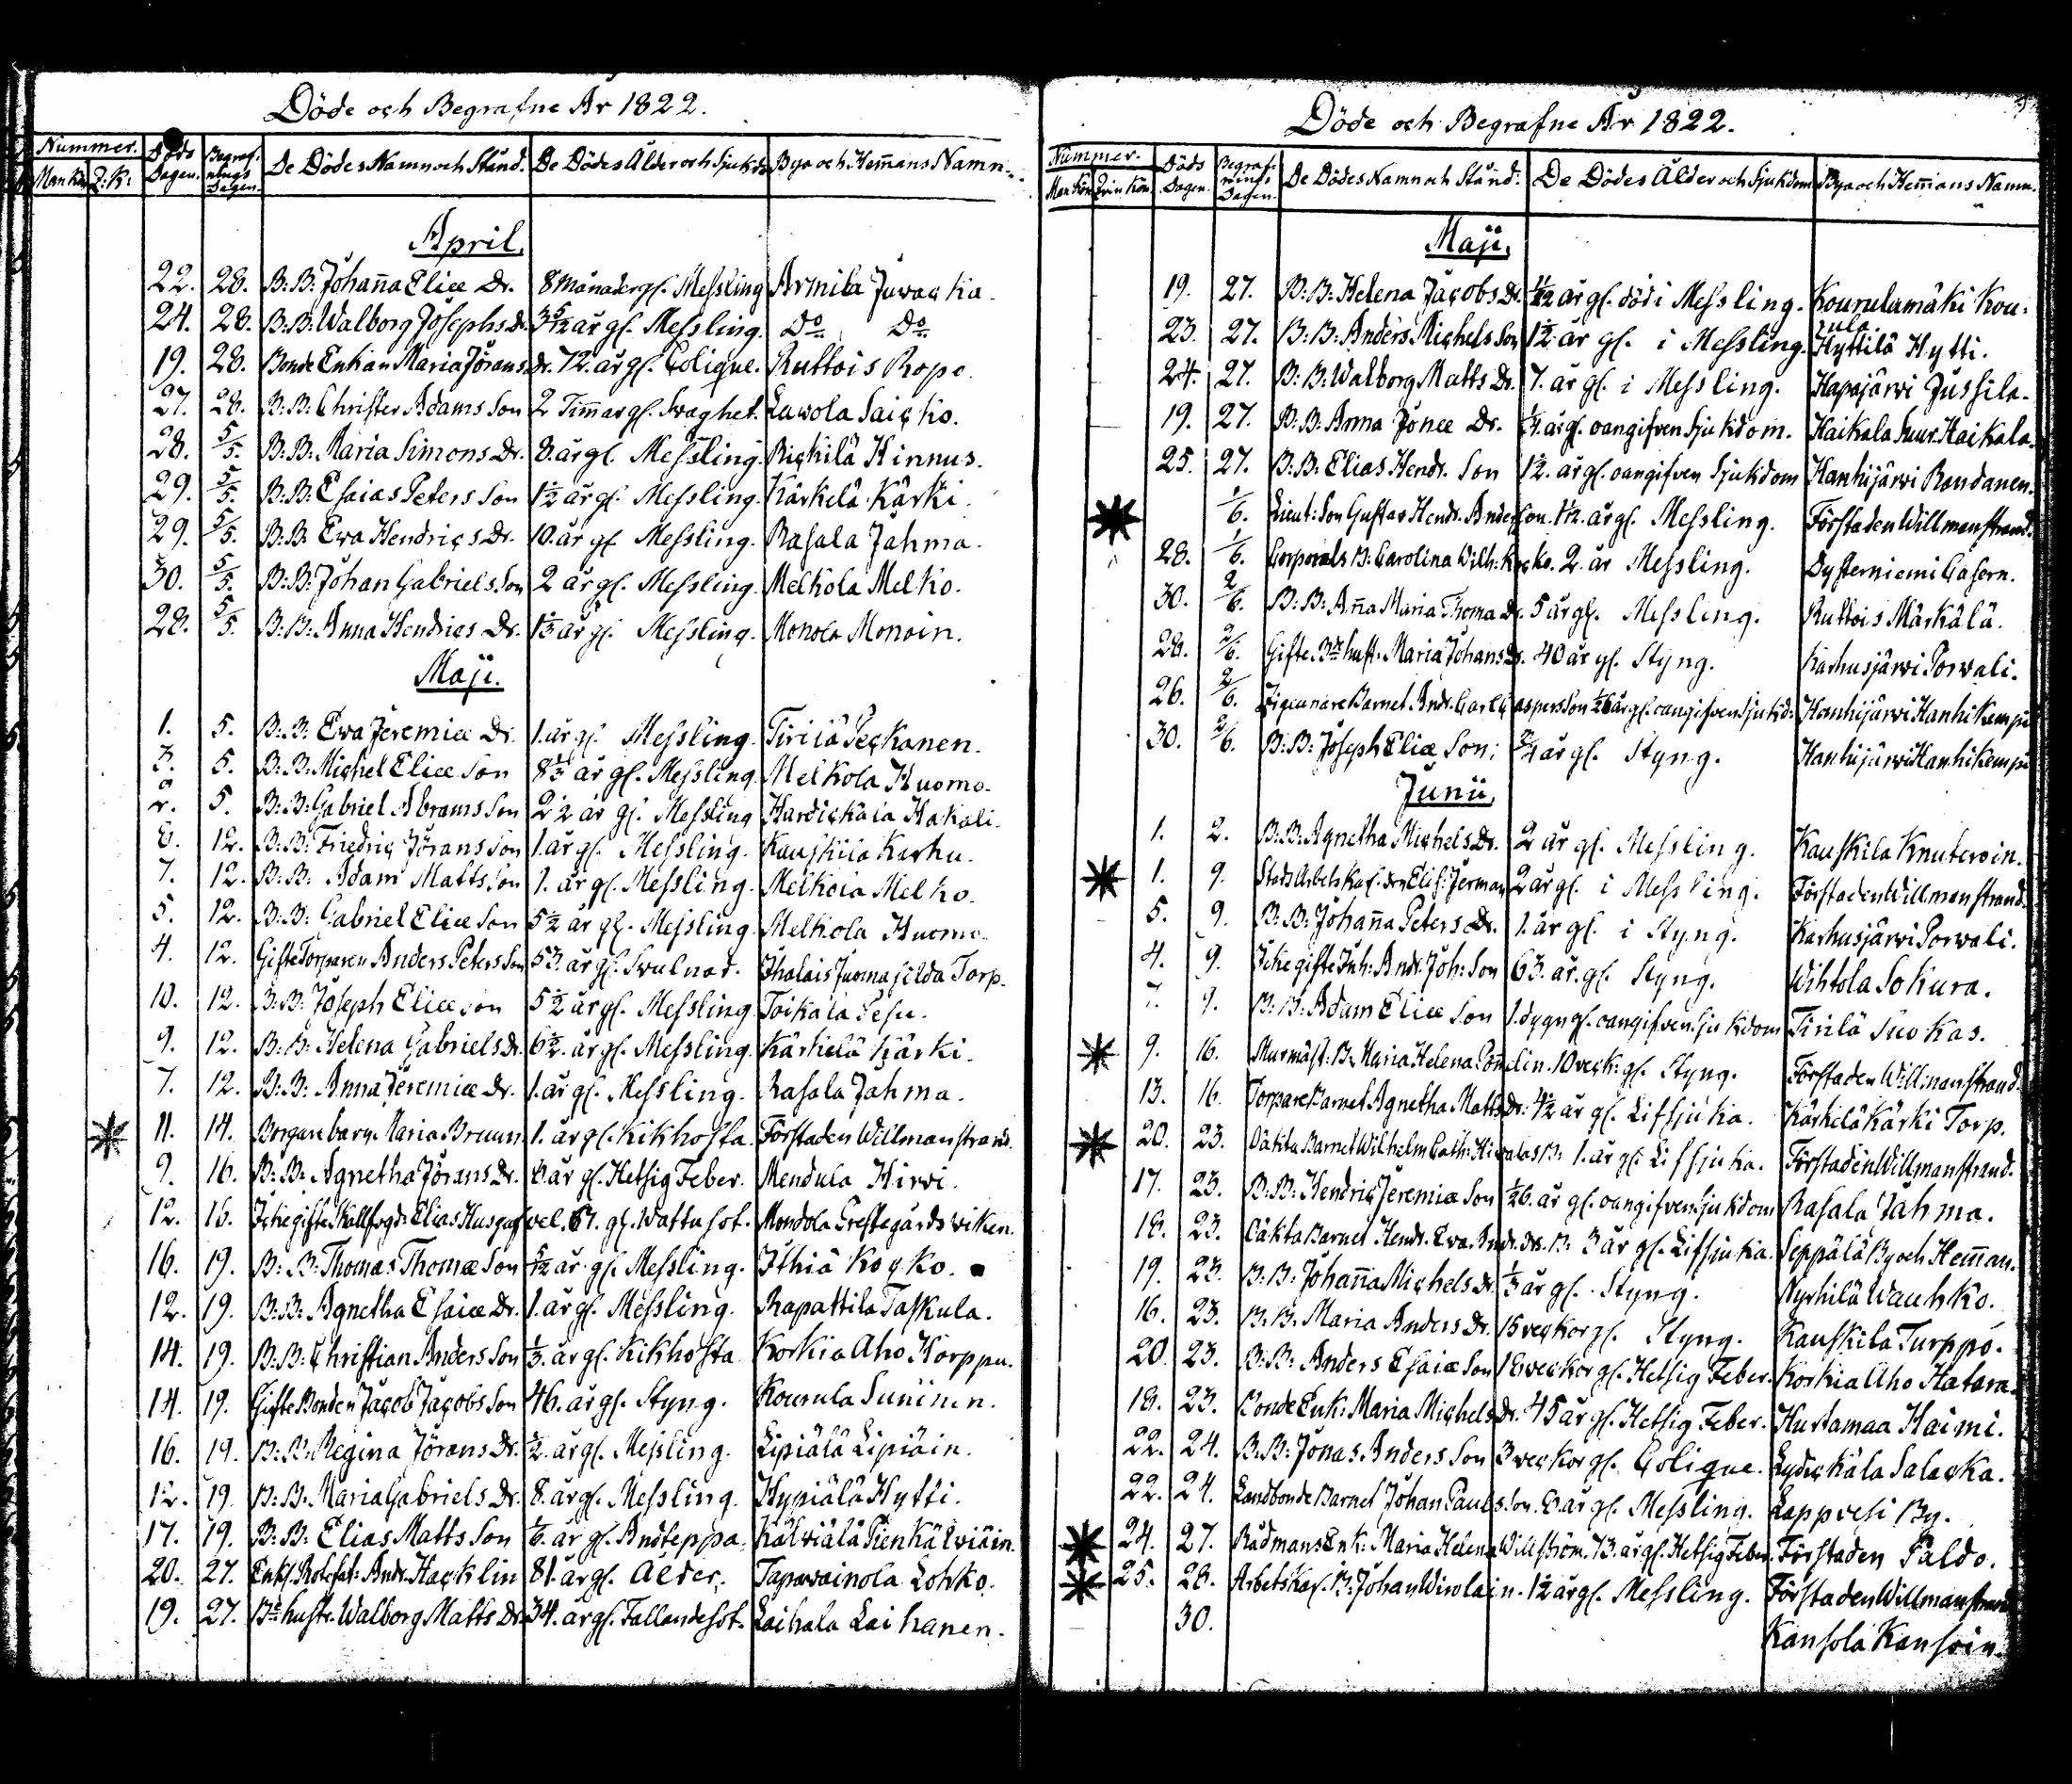 Döde och Begrafne År 1822.
Nummer. Döds Dagen. Begraf: nings Dagen. De Dödes Namn och Stånd. De Dödes Ålder och Sjukdo Bya och Hem̄ans Namn.
Man Kön Q: K:
April.
22. 28. B: B: Johan̄a Eliæ Dr. 8 Månader gl. Messling Armila Juvacka.
24. 28. B: B: Walborg Josephs Dr. 3 5/12 år gl. Messling. Do Do
19. 28. Bonde Enkan Maria Jörans Dr. 72. år gl. Colique. Ruttois Rope.
27. 28. B: B: Christer Adams Son 2 Tim̄ar gl. Svaghet. Lawola Saicko.
28. 5/5. B: B: Maria Simons Dr. 8. år gl. Messling. Rickilä Hinnus.
29. 5/5. B: B: Esaias Peters Son 1½ år gl. Messling. Kärkelä Kärki.
29. 5/5. B: B: Ewa Hendrics Dr. 10. år gl. Messling. Rasala Jahma.
30. 5/5. B: B: Johan Gabriels Son 2 år gl. Messling. Melkola Melko.
28. 5/5. B: B: Anna Hendrics Dr. 1⅓ år gl. Messling. Monola Monoin.
Maji.
1. 5. B: B: Ewa Jeremiæ Dr. 1. år gl. Messling. Tiriiä Peckanen.
3. 5. B: B: Michel Eliæ Son 8⅓ år gl. Messling. Melkola Huomo.
2. 5. B: B: Gabriel Abrams Son 2½ år gl. Messling Hardickala Hakali.
6. 12. B: B: Friedric Jörans Son 1. år gl. Messling. Kauskila Karhu.
7. 12. B: B: Adam Matts Son 1. år gl. Messling. Melkola Melko.
5. 12. B: B: Gabriel Eliæ Son 5½ år gl. Messling. Melkola Huomo.
4. 12. Gifte Torparen Anders Peters Son 53. år gl. Svulnad. Ihalais Juoma silda Torp.
10. 12. B: B: Joseph Eliæ Son 5½ år gl. Messling Toikala Pesu.
9. 12. B: B: Helena Gabriels Dr. 6½. år gl. Messling. Kärkelä Kärki.
7. 12. B: B: Anna Jeremiæ Dr. 1. år gl. Messling. Rasala Jahma.
11. 14. Borgare barn. Maria Bruun 1. år gl. Kikhosta. Förstaden Willmanstrand.
9. 16. B: B: Agnetha Jörans Dr. 8. år gl. Hetsig Feber. Mendula Hirvi.
12. 16. Icke gifte Kallfogd: Elias Husgafvel. 67. gl. Wattusot. Mondola Prestegårds viken.
16. 19. B: B: Thomas Thomæ Son 5/12 år. gl. Messling. Ithiä Kocko.
12. 19. B: B: Agnetha Esaiæ Dr. 1. år gl. Messling. Rapattila Taskula.
14. 19. B: B: Christian Anders Son ⅓. år gl. Kikhosta Korkia Aho Horppu.
14. 19. Gifte Bonden Jacob Jacobs Son 46. år gl. Styng. Kourula Suninen.
16. 19. B: B: Regina Jörans Dr. ½. år gl. Messling. Lipiälä Lipiäin.
12. 19. B: B: Maria Gabriels Dr. 8. år gl. Messling. Hypiälä Hytti.
17. 19. B: B: Elias Matts Son ⅙. år gl. Andteppa. Kälviälä Pien Kälviäin.
20. 27. Enkl. Rotefat: Andr. Hacklin 81. år gl. Ålder. Tapavainola Lohko.
19. 27. Bde hustr. Walborg Matts Dr. 34. år gl. Fallandesot. Laihala Laihanen.
Döde och Begrafne År 1822.
Nummer. Döds Dagen. Begraf: nings Dagen. De Dödes Namn och Stånd. De Dödes Ålder och Sjukdom Bya och Hem̄ans Namn.
Man Kön Qvin Kön
Maji.
19. 27. B: B: Helena Jacobs Dr. 1/12 år gl. död i Messling. Kourulamäki Kourula.
23. 27. B: B: Anders Michels Son 1½ år gl. i Messling. Hyttilä Hytti.
24. 27. B: B: Walborg Matts Dr. 7. år gl. i Messling. Hapajärvi Jussila.
19. 27. B: B: Anna Jonæ Dr. ¼. år gl. oangifven Sjukdom. Haikala Suur Haikala.
25. 27. B: B: Elias Hendr. Son 1½. år gl. oangifven Sjukdom Hanhijärvi Rondanen.
1/6. Lieut: Son Gustav Hendr. Anderson. 1½. år gl. Messling. Förstaden Willmanstrand.
28. 1/6. Corporals B: Carolina Wilh: Kocko. 2. år Messling. Dysterniemi Casern.
30. 2/6. B: B: An̄a Maria Thoma Dr. 5 år gl. Messling. Ruttois Märkälä.
28. 2/6. Gifte Bde hust: Maria Johans Dr. 40 år gl. Styng. Karhusjärvi Porvali.
26. 2/6. Zigenare Barnet Andr. Carl Caspers Son ⅙ år gl. oangifven Sjukd: Hanhijärvi Hanhikempi
30. 2/6. B: B: Joseph Eliæ Son: ¾ år gl. Styng. Hanhijärvi Hanhikempi
Junii.
1. 2. B: B: Agnetha Michels Dr. 2 år gl. Messling. Kauskila Knuteroin.
1. 9. Stads Arbets Karl. Elis: Jerman 2 år gl. i Messling. Förstaden Willmanstrand.
5. 9. B: B: Johan̄a Peters Dr. 1. år gl. i Styng. Karhusjärvi Porvali.
4. 9. Icke gifte Inh: Andr. Joh: Son 63. år. gl. Styng. Wihtola Sokura.
7. 9. B: B: Adam Eliæ Son 1. dygn gl. oangifven Sjukdom Tirilä Suokas.
9. 16. Murmäst: B: Maria Helena Pomelin. 10 veck: gl. Styng. Förstaden Willmanstrand.
13. 16. Torpare Barnet Agnetha Matts Dr. 4½ år gl. Lifsjuka. Kärkelä Kärki Torp.
20. 23. Oäkta Barnet Wilhelm Cath: Hivalas B: 1. år gl. Lifsjuka. Förstaden Willmanstrand.
17. 23. B: B: Hendric Jeremiæ Son 1/26. år gl. oangifven Sjukdom Rasala Jahma.
18. 23. Oäkta Barnet Hendr. Ewa Andr. Drs. B: 3 år gl. Lifsjuka. Seppälä By och Hem̄an.
19. 23. B: B: Johan̄a Michels Dr. ⅓ år gl. Styng. Nyrhilä Wauhko.
16. 23. B: B: Maria Anders Dr. 15 veckor gl. Styng. Kauskila Turppo.
20. 23. B: B: Anders Esaiæ Son 18 veckor gl. Hetsig Feber. Korkia Aho Hatara.
18. 23. Bonde Enk: Maria Michels Dr. 45 år gl. Hetsig Feber. Hurtamaa Haimi.
22. 24. B: B: Jonas Anders Son 3 veckor gl. Colique. Lydickälä Salacka.
22. 24. Landbonde Barnet Johan Pauls Son. 8. år gl. Messling. Lappvesi By.
24. 27. Rådmans Enk: Maria Helena Willström. 73. år gl. Hetsig Feber. Förstaden Paldo.
25. 28. Arbets Kar. B: Johan Wirolain. 1½ år gl. Messling. Förstaden Willmanstrand
30. Kansola Kansoin.